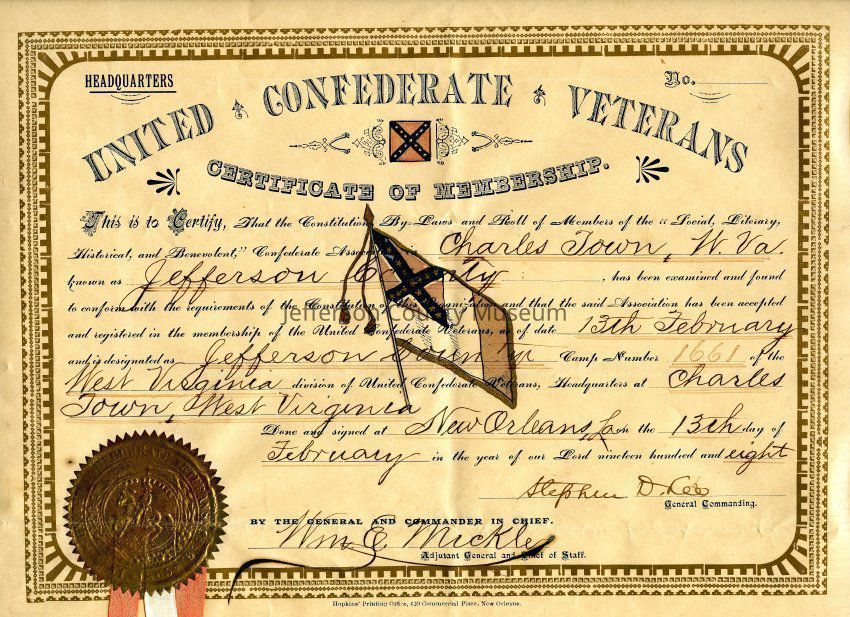 HEADQUARTERS
No.
UNITED CONFEDERATE VETERANS
CERTIFICATE OF MEMBERSHIP.
This is to Certify, That the Constitution, By-Laws and Roll of Members of the "Social, Literary,
Historical, and Benevolent," Confederate Charles Town, W. Va.
known as Jefferson County, has been examined and found
to conform with the requirements of the Constitution of this Organization and that the said Association has been accepted
Jefferson County Museum
and registered in the membership of the United Confederate Veterans, as of date 13th February
and is designated as Jefferson County Camp Number 1661 of the
West Virginia division of United Confederate Veterans, Headquarters at Charles
Town, West Virginia
Done and signed at New Orleans, La on the 13th day of
February in the year of our Lord nineteen hundred and eight
Stephen D. Lee
General Commanding.
BY THE GENERAL AND COMMANDER IN CHIEF.
Wm. E. Mickle
Adjutant General and Chief of Staff.
Hopkins' Printing Office, 629 Commercial Place, New Orleans.